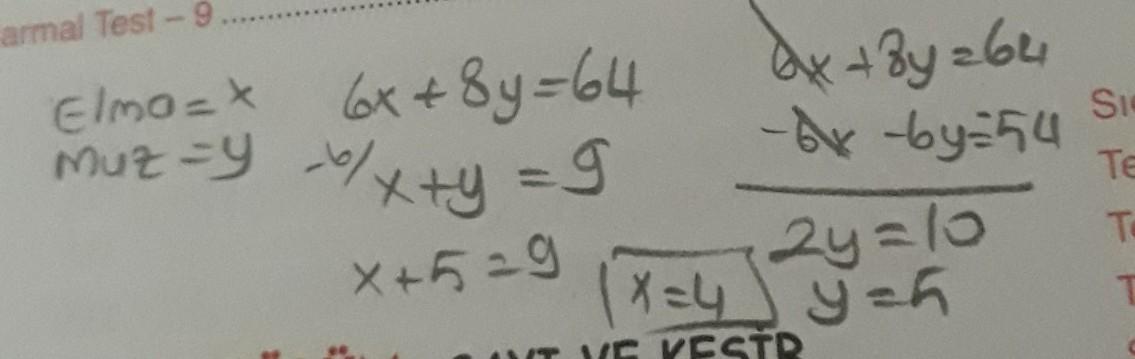 armal Test – 9
Elma = x
Muz = y
6x + 8y = 64
-6/ x+y = 9
x+5 = 9
x=4
6x + 8y = 64
-6x -6y = -54
2y = 10
y = 5
SAYI VE KESİR
Te
T